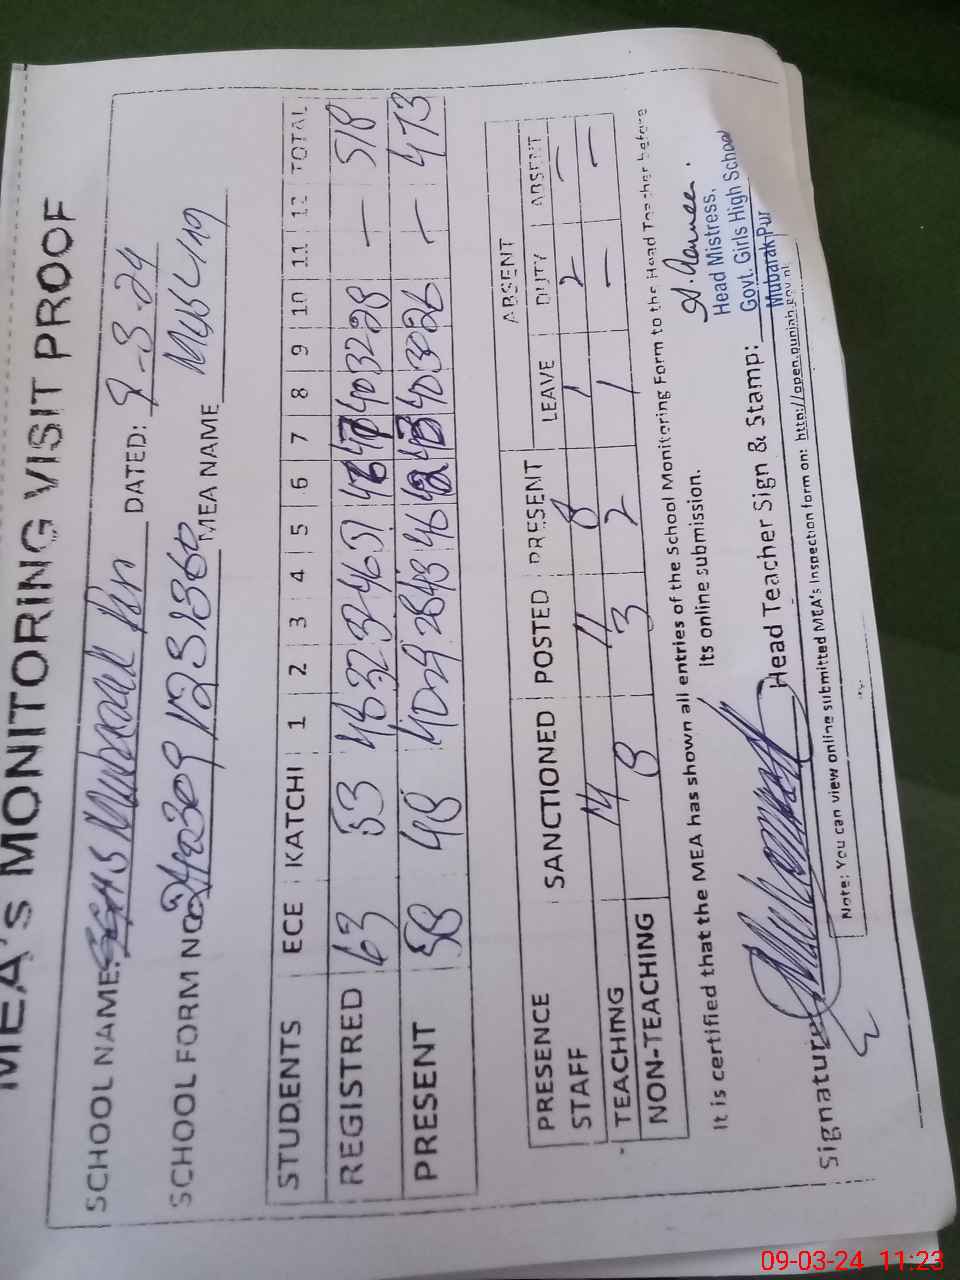 MEA's MONITORING VISIT PROOF
SCHOOL NAME: GGHS Mubarak Pur DATED: 9-3-24
SCHOOL FORM NO MEA NAME
STUDENTS ECE KATCHI 1 2 3 4 5 6 7 8 9 10 11 12 TOTAL
REGISTRED 63 53 48 32 32 46 51 46 47 40 32 28 — 518
PRESENT 58 48 40 29 28 43 46 42 43 40 30 26 — 473
ABSENT
PRESENCE STAFF SANCTIONED POSTED PRESENT LEAVE DUTY ABSENT
TEACHING 14 11 8 1 2 —
NON-TEACHING 8 3 2 1 — —
It is certified that the MEA has shown all entries of the School Monitoring Form to the Head Teacher before
its online submission.
Head Mistress,
Govt. Girls High School
Mubarak Pur
Signature Head Teacher Sign & Stamp:
Note: You can view online submitted MEA's Inspection form on: http://open.punjab.gov.pk
09-03-24 11:23